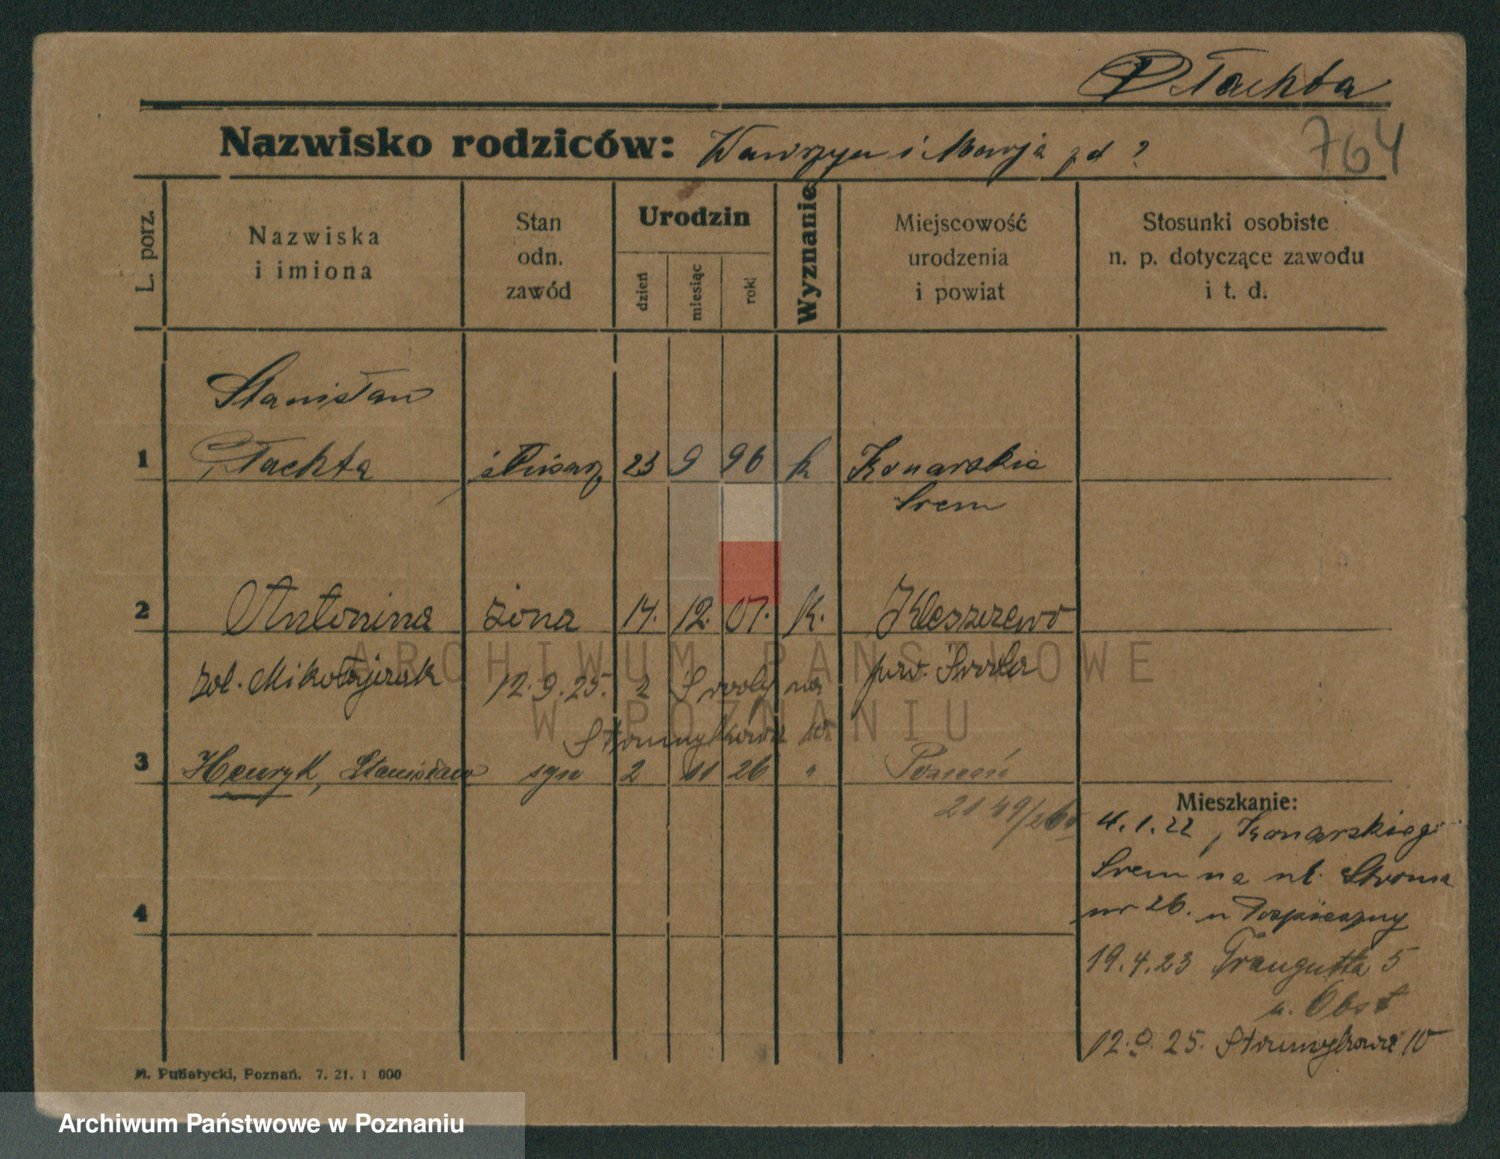 Płachta
Nazwisko rodziców: Wawrzyn i Marja zd ?
764
L. porz.
Nazwiska
i imiona
Stan
odn.
zawód
Urodzin
dzień
miesiąc
rok
Wyznanie
Miejscowość
urodzenia
i powiat
Stosunki osobiste
n. p. dotyczące zawodu
i t. d.
Stanisław
1 Płachta ślusarz 23 9 96 k Konarskie
Śrem
2 Antonina żona 14. 12. 07. K. Kleszczewo
zd. Mikołajczak 12.9.25. z Środy na pow. Środa
Strumykowa 10
3 Henryk, Stanisław syn 2 11 26 " Poznań
Mieszkanie:
4.1.22, Konarskie
Śrem na ul. Stroma
nr 26. u
4
19.4.23 Traugutta 5
u. Obst
12.9.25. Strumykowa 10
M. Putiatycki, Poznań. 7. 21. 1 000
ARCHIWUM PAŃSTWOWE
W POZNANIU
Archiwum Państwowe w Poznaniu